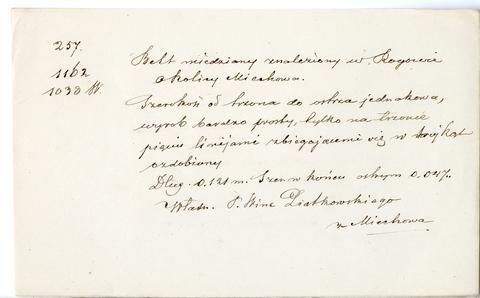 257.
1162
1038 W.
Belt miedziany znaleziony w Rogowie
okolicy Miechowa.
Szerokość od trzona do ostrza jednakowa,
wyrób bardzo prosty, tylko na trzonie
pięciu linijami zbiegającemi się w trójkąt
ozdobiony
Dług. 0.121 m. Szer. w końcu ostrym 0.047.
Własn. P. Winc Ziatkowskiego
z Miechowa